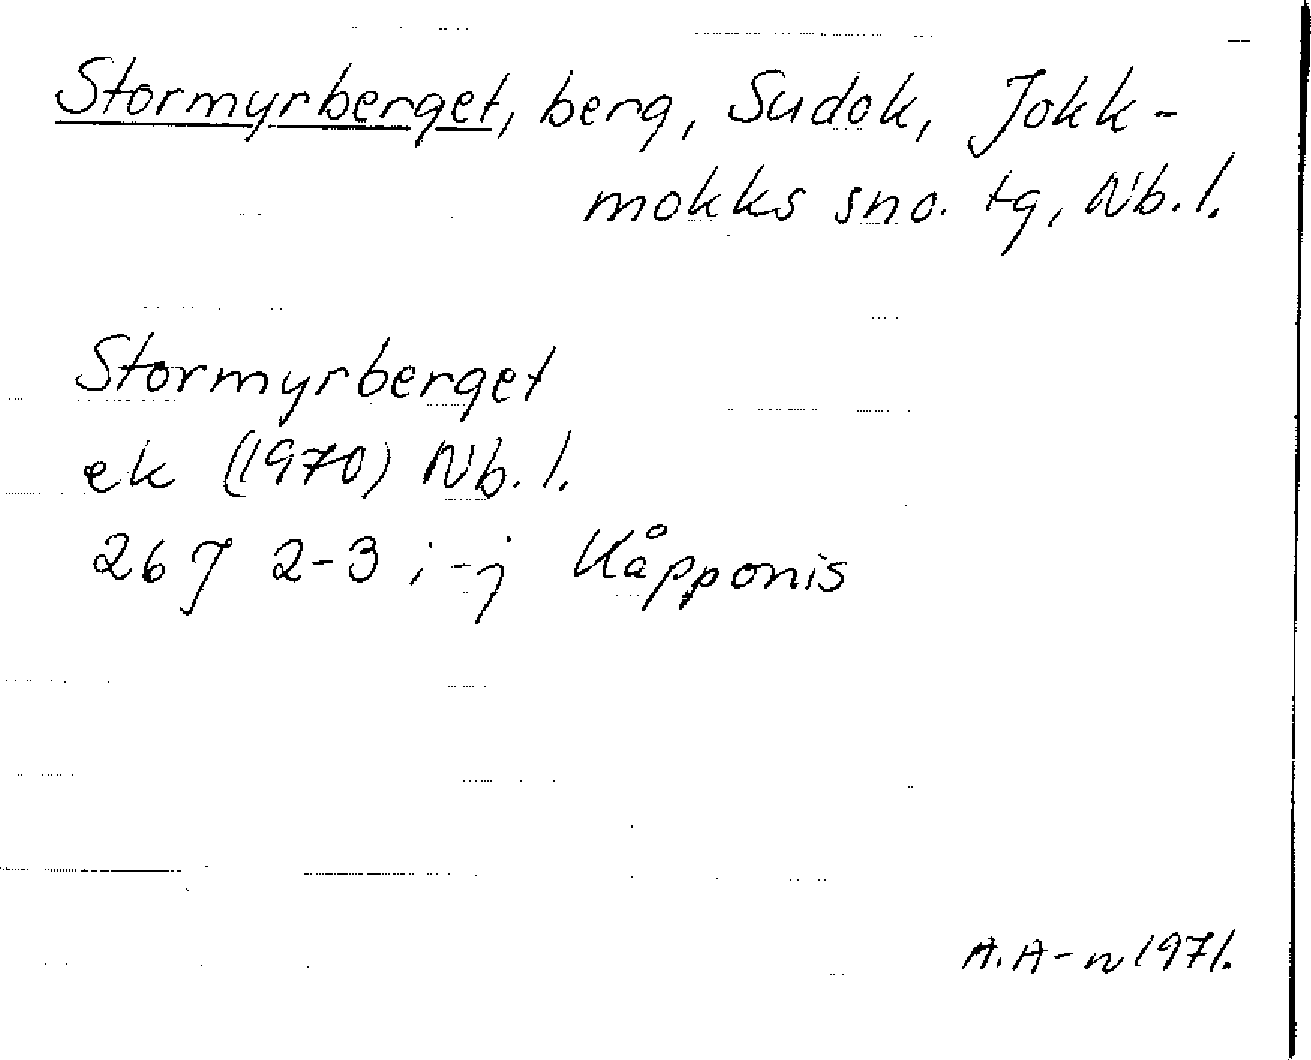 Stormyrberget, berg, Sudok, Jokk-
mokks sno. tg, Nb. l.
Stormyrberget
ek (1970) Nb. l.
26 J 2-3 i-j Kåpponis
A. A-n 1971.